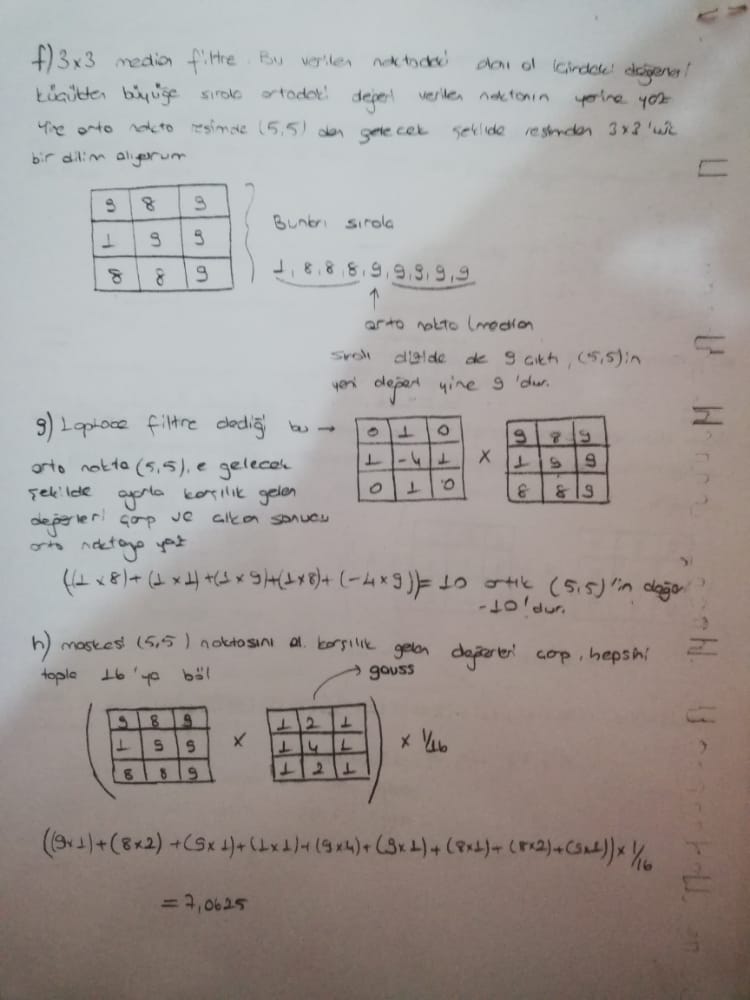 f) 3x3 median filtre. Bu verilen noktadaki alanı al içindeki değerleri
küçükten büyüğe sırala ortadaki değeri verilen noktanın yerine yaz
Yine orta nokta resimde (5,5) dan gelecek şekilde resimden 3x3'lük
bir dilim alıyorum
9 8 9
1 9 9
8 8 9
Bunları sırala
1, 8, 8, 8, 9, 9, 9, 9, 9
orta nokta (median
sıralı dizide de 9 çıktı, (5,5)in
yeni değeri yine 9'dur.
g) Laplace filtre dediği bu →
0 1 0
1 -4 1
0 1 0
x
9 8 9
1 9 9
8 8 9
orta nokta (5,5), e gelecek
şekilde ayarla karşılık gelen
değerleri çarp ve çıkan sonucu
orta noktaya yaz
((1x8)+(1x1)+(1x9)+(1x8)+(-4x9))= 10 artık (5,5)'in değe
-10'dur.
h) maskesi (5,5) noktasını al. karşılık gelen değerleri çarp, hepsini
topla 16'ya böl
gauss
9 8 9
1 9 9
8 8 9
x
1 2 1
1 4 1
1 2 1
x 1/16
((9x1)+(8x2)+(9x1)+(1x1)+(9x4)+(9x1)+(8x1)+(8x2)+(9x1))x 1/16
= 7,0625